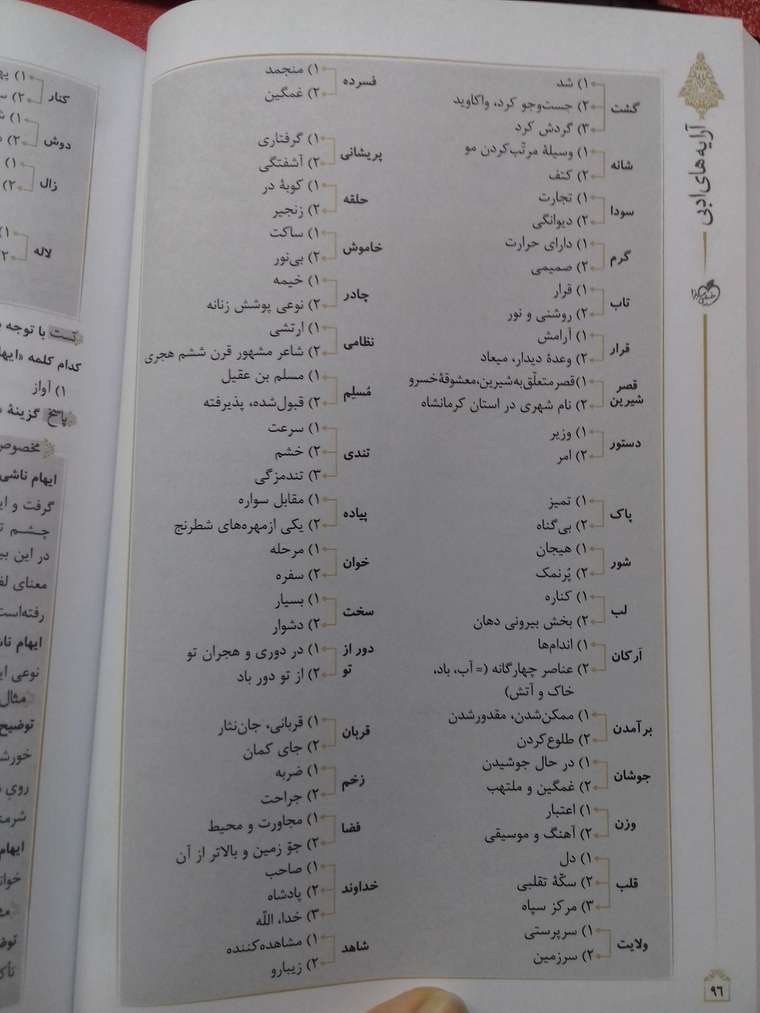 آرایه های ادبی
گشت
۱) شد
۲) جست‌وجو کرد، واکاوید
۳) گردش کرد
شانه
۱) وسیلهٔ مرتّب‌کردن مو
۲) کتف
سودا
۱) تجارت
۲) دیوانگی
گرم
۱) دارای حرارت
۲) صمیمی
تاب
۱) قرار
۲) روشنی و نور
قرار
۱) آرامش
۲) وعدهٔ دیدار، میعاد
قصر
شیرین
۱) قصر متعلّق به شیرین، معشوقهٔ خسرو
۲) نام شهری در استان کرمانشاه
دستور
۱) وزیر
۲) امر
پاک
۱) تمیز
۲) بی‌گناه
شور
۱) هیجان
۲) پُرنمک
لب
۱) کناره
۲) بخش بیرونی دهان
اَرکان
۱) اندام‌ها
۲) عناصر چهارگانه (= آب، باد،
خاک و آتش)
برآمدن
۱) ممکن‌شدن، مقدورشدن
۲) طلوع‌کردن
جوشان
۱) در حال جوشیدن
۲) غمگین و ملتهب
وزن
۱) اعتبار
۲) آهنگ و موسیقی
قلب
۱) دل
۲) سکّهٔ تقلبی
۳) مرکز سپاه
ولایت
۱) سرپرستی
۲) سرزمین
فسرده
۱) منجمد
۲) غمگین
پریشانی
۱) گرفتاری
۲) آشفتگی
حلقه
۱) کوبهٔ در
۲) زنجیر
خاموش
۱) ساکت
۲) بی‌نور
چادر
۱) خیمه
۲) نوعی پوشش زنانه
نظامی
۱) ارتشی
۲) شاعر مشهور قرن ششم هجری
مُسلِم
۱) مسلم بن عقیل
۲) قبول‌شده، پذیرفته
تندی
۱) سرعت
۲) خشم
۳) تندمزگی
پیاده
۱) مقابل سواره
۲) یکی ازمهره‌های شطرنج
خوان
۱) مرحله
۲) سفره
سخت
۱) بسیار
۲) دشوار
دور از
تو
۱) در دوری و هجران تو
۲) از تو دور باد
قربان
۱) قربانی، جان‌نثار
۲) جای کمان
زخم
۱) ضربه
۲) جراحت
فضا
۱) مجاورت و محیط
۲) جوّ زمین و بالاتر از آن
خداوند
۱) صاحب
۲) پادشاه
۳) خدا، اللّه
شاهد
۱) مشاهده‌کننده
۲) زیبارو
۹۶
کنار
۱)
۲)
دوش
۱)
۲)
زال
۱)
۲)
لاله
۱)
۲)
تست با توجه
کدام کلمه «ایها
۱) آواز
پاسخ گزینهٔ
مخصوص
ایهام ناشی
گرفت و
چشم
در این
معنای
رفته‌است
ایهام
نوعی
مثال
توضیح
روی
ایهام